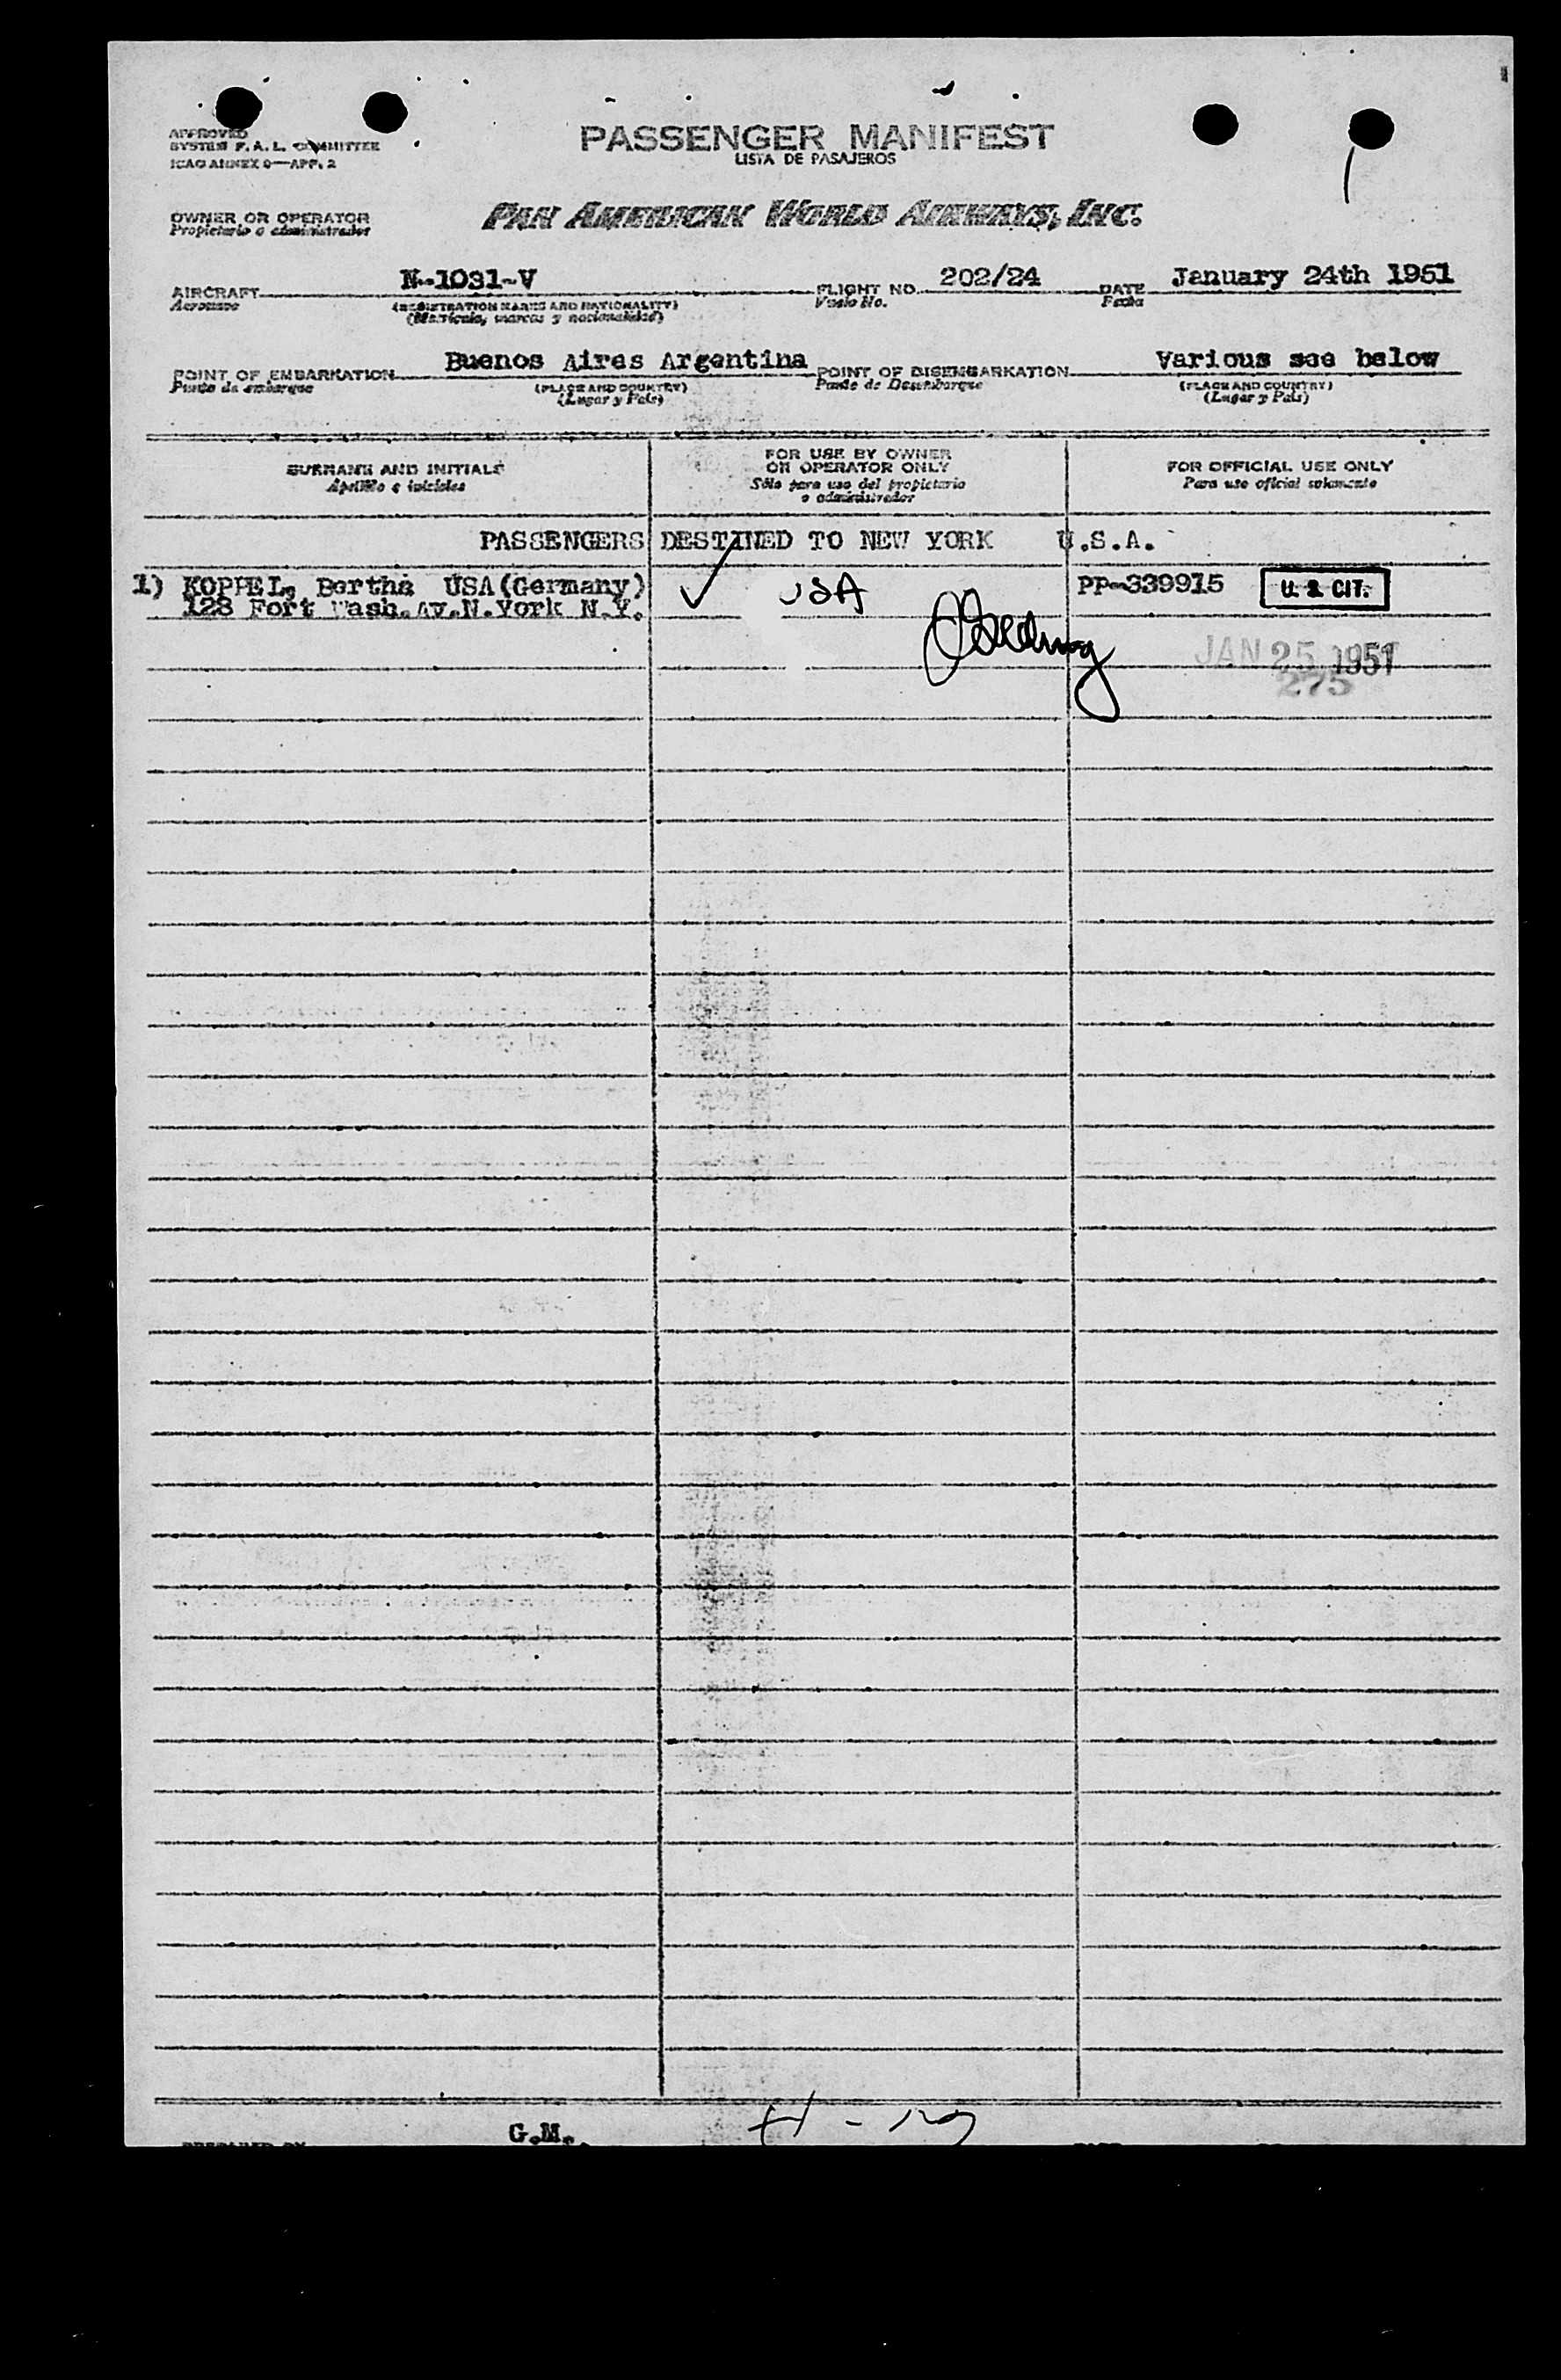 PASSENGER MANIFEST
LISTA DE PASAJEROS
APPROVED
SYSTEM F.A.L. COMMITTEE
ICAO ANNEX 9—APP. 2
OWNER OR OPERATOR
Propietario o administrador
PAN AMERICAN WORLD AIRWAYS, INC.
AIRCRAFT N-1031-V FLIGHT NO. 202/24 DATE January 24th 1951
Aeronave (REGISTRATION MARKS AND NATIONALITY) Vuelo No. Fecha
(Matrícula, marcas y nacionalidad)
POINT OF EMBARKATION Buenos Aires Argentina POINT OF DISEMBARKATION Various see below
Punto de embarque (PLACE AND COUNTRY) Punto de Desembarque (PLACE AND COUNTRY)
(Lugar y País) (Lugar y País)
SURNAME AND INITIALS
Apellido e iniciales
FOR USE BY OWNER
OR OPERATOR ONLY
Sólo para uso del propietario
o administrador
FOR OFFICIAL USE ONLY
Para uso oficial solamente
PASSENGERS DESTINED TO NEW YORK U.S.A.
1) KOPPEL, Bertha USA(Germany) USA PP-339915 U. S. CIT.
128 Fort Wash.Av.N.York N.Y.
JAN 25 1951
275
G.M.
PREPARED BY